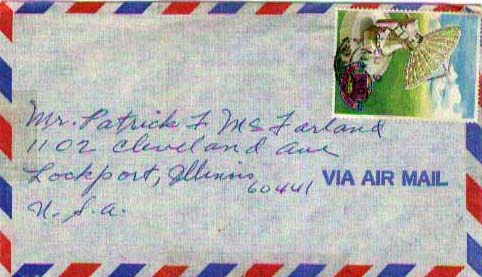 Mr. Patrick F McFarland
1102 Cleveland Ave
Lockport, Illinois
60441
VIA AIR MAIL
U.S.A.